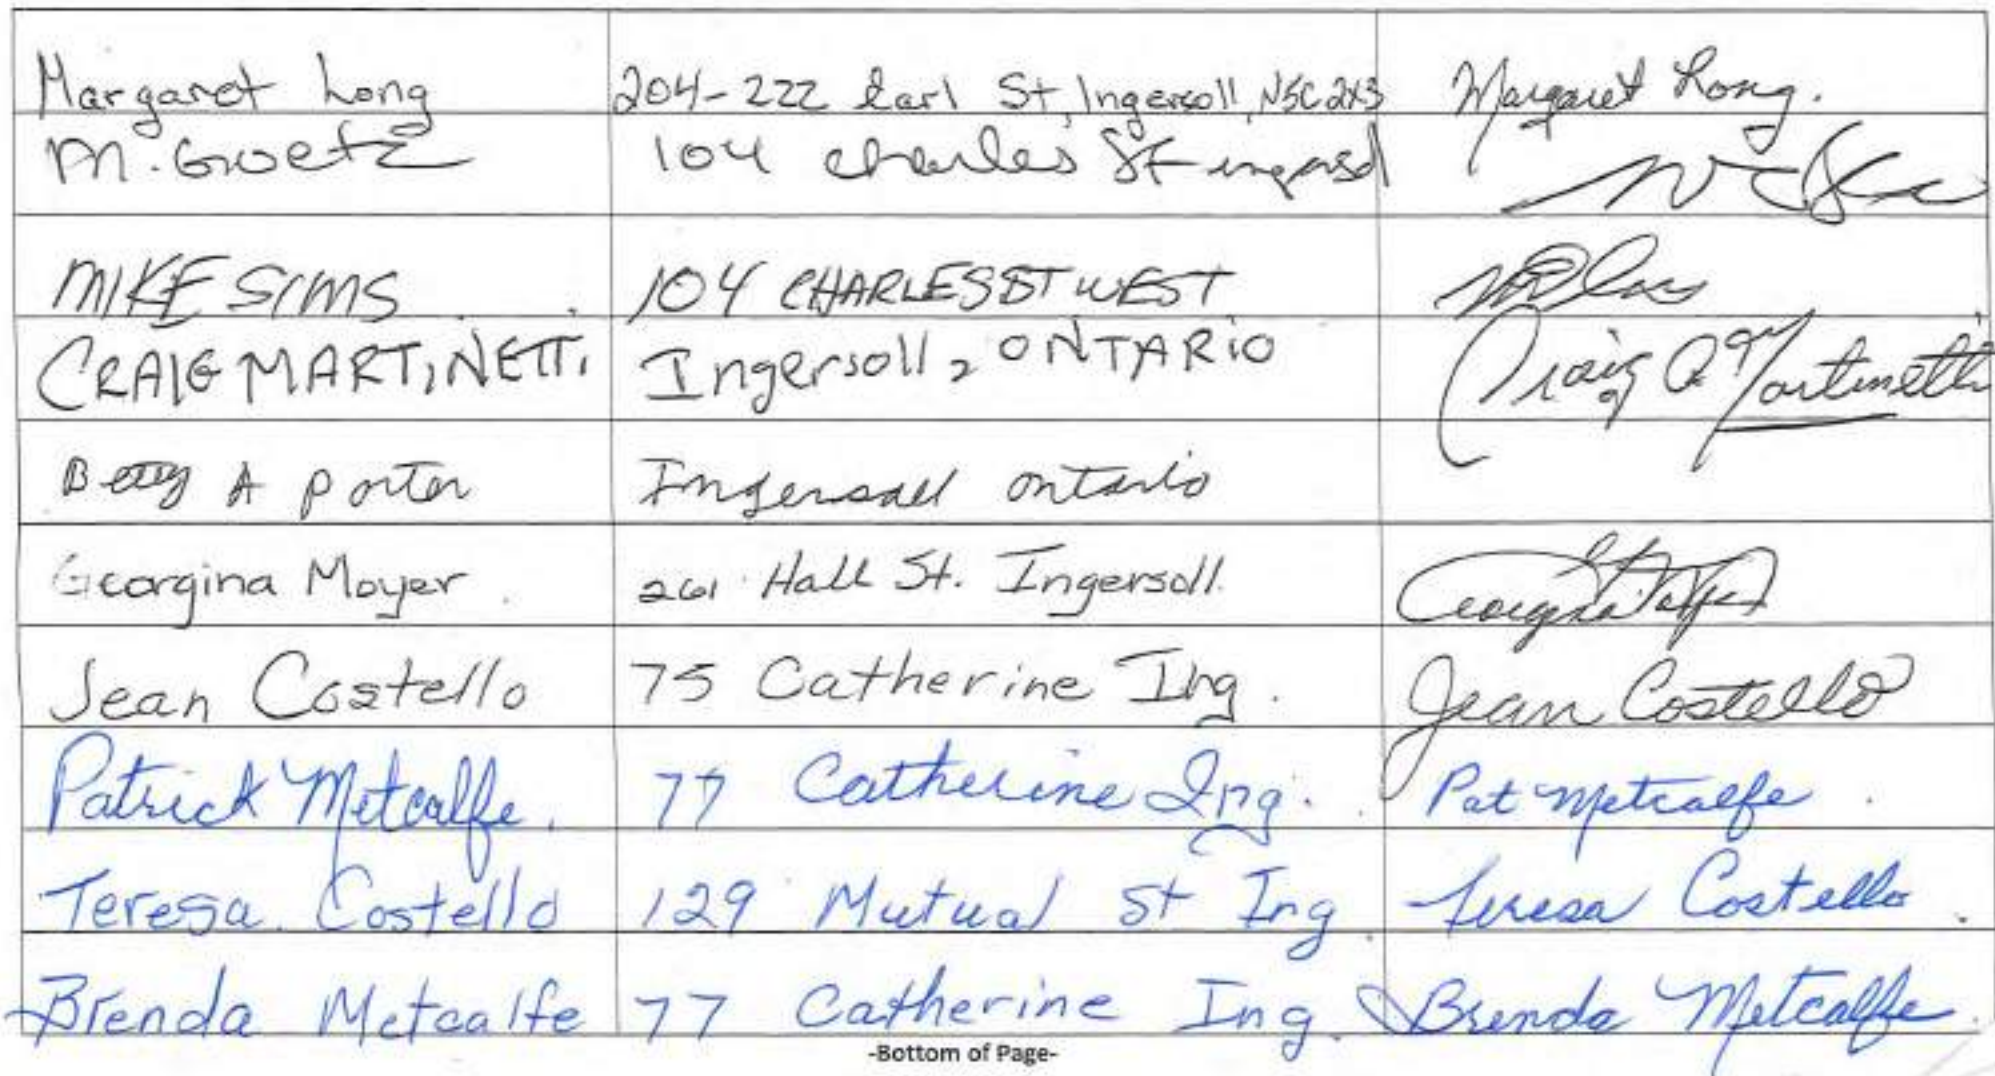 Margaret Long 204-222 Earl St, Ingersoll, N5C 2X3 Margaret Long.
M. Goetz 104 Charles St ingersol
MIKE SIMS 104 CHARLES ST WEST
CRAIG MARTINETTI Ingersoll, ONTARIO Craig A Martinetti
Betty A Porter Ingersoll Ontario
Georgina Moyer 261 Hall St. Ingersoll. Georgina
Jean Costello 75 Catherine Ing. Jean Costello
Patrick Metcalfe. 77 Catherine Ing. Pat Metcalfe.
Teresa Costello 129 Mutual St Ing. Teresa Costello.
Brenda Metcalfe 77 Catherine Ing. Brenda Metcalfe.
-Bottom of Page-